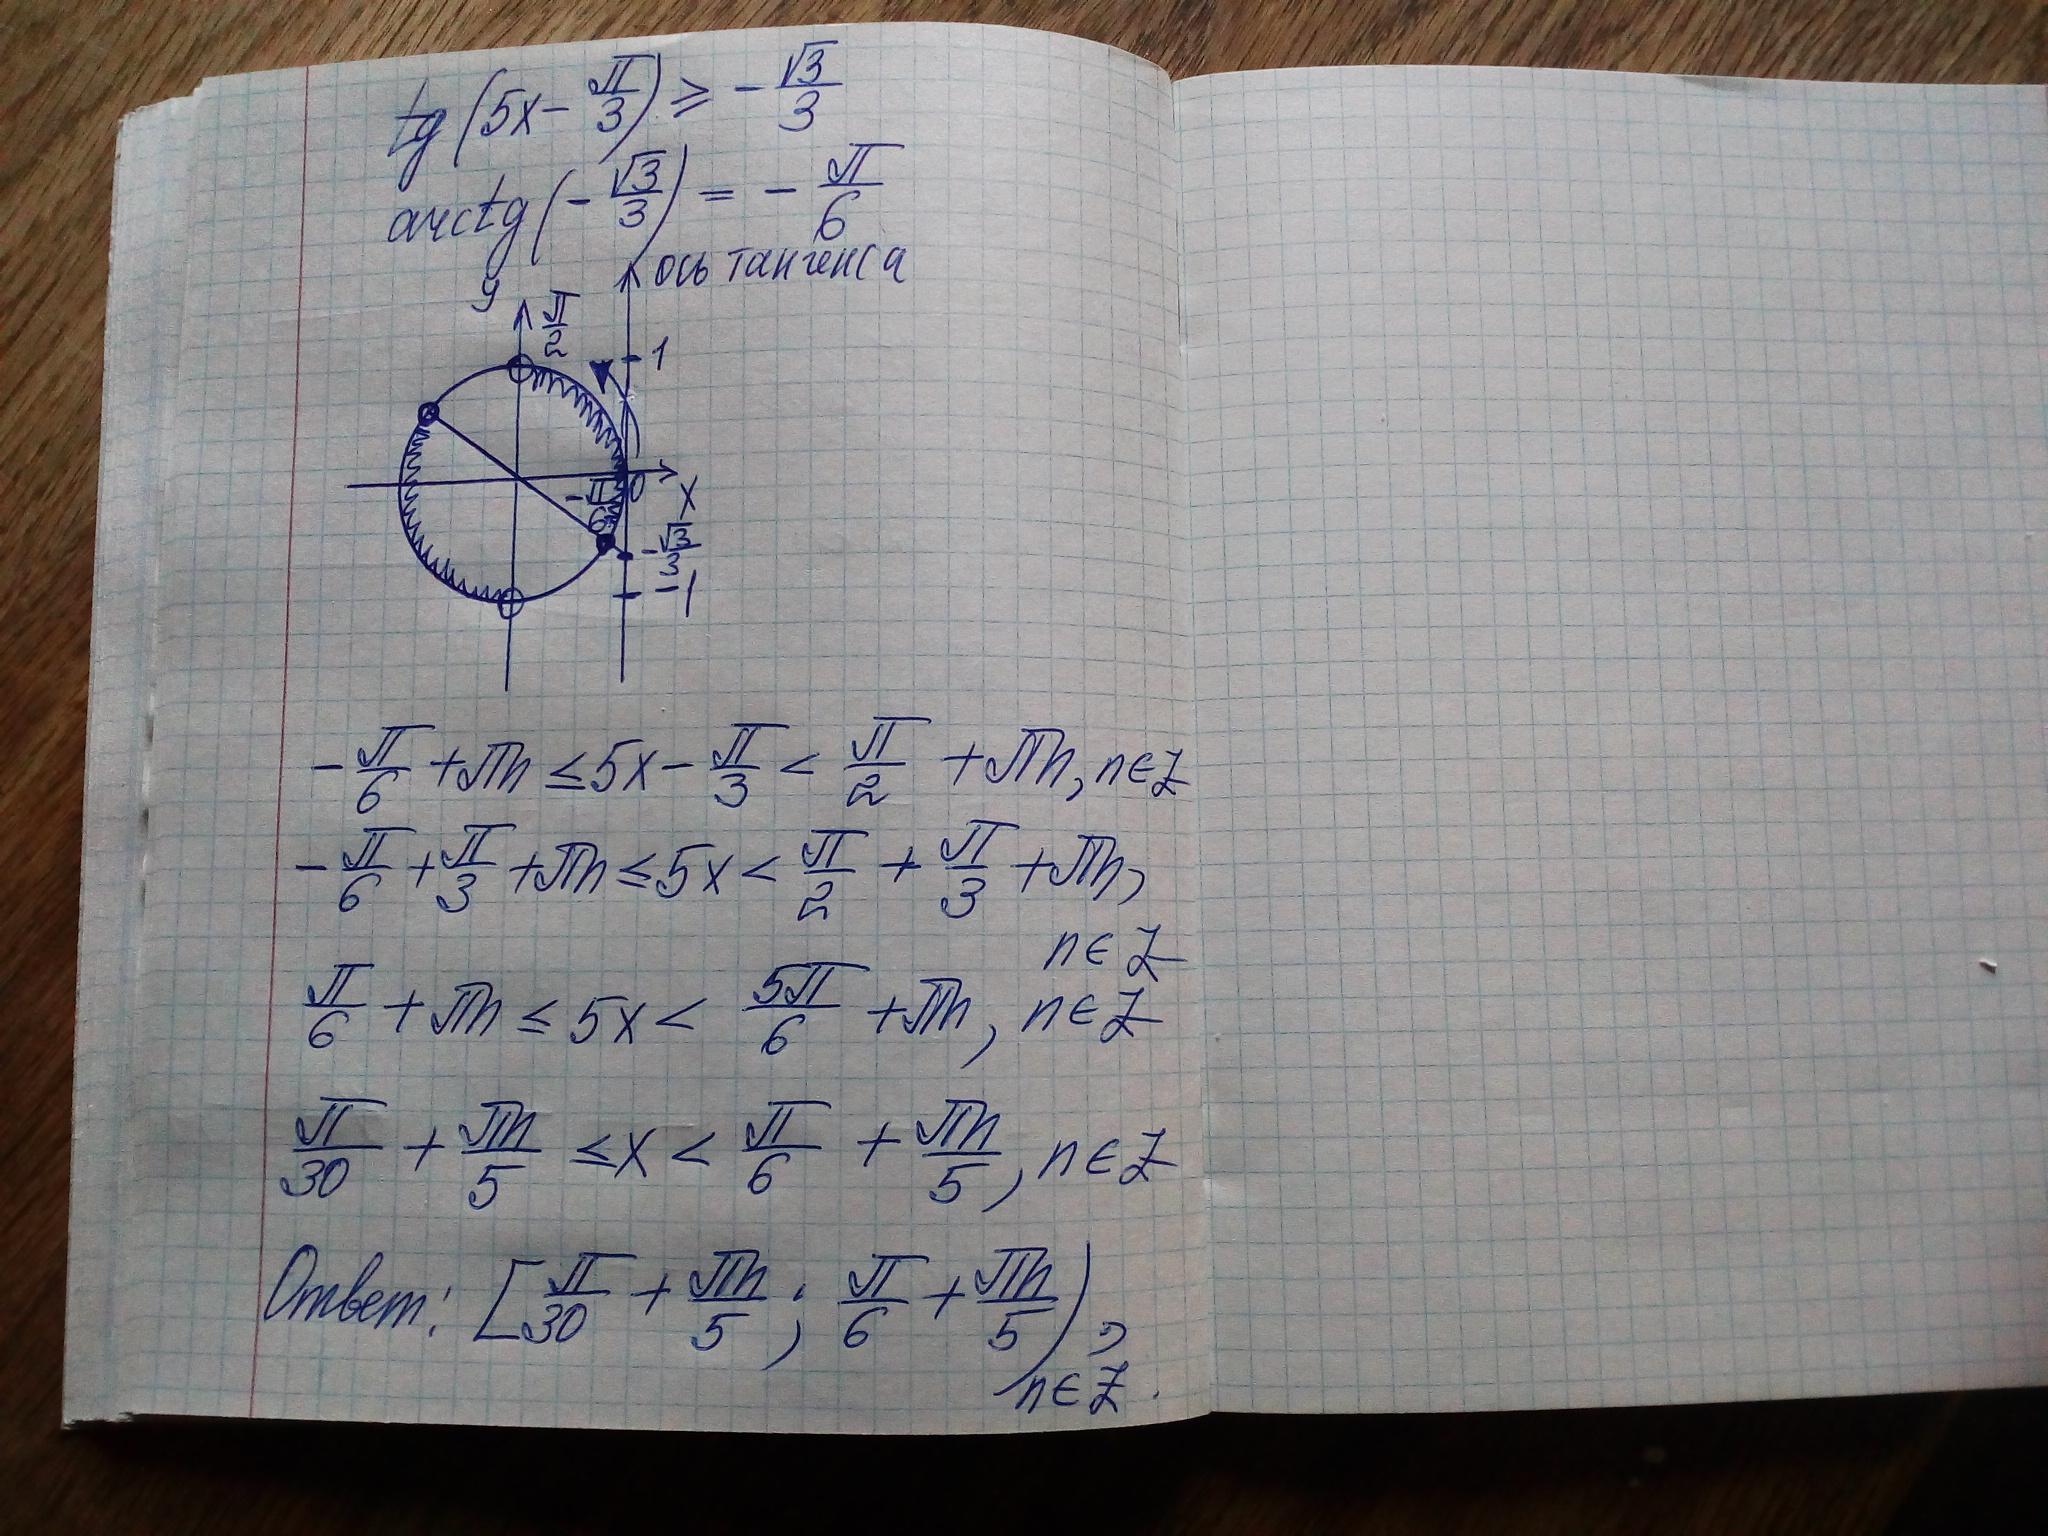 tg(5x - π/3) ≥ - √3/3
arctg(-√3/3) = - π/6
ось тангенса
y
π/2
1
-π/6
0
x
-√3/3
-1
-π/6 + πn ≤ 5x - π/3 < π/2 + πn, n ∈ Z
-π/6 + π/3 + πn ≤ 5x < π/2 + π/3 + πn,
n ∈ Z
π/6 + πn ≤ 5x < 5π/6 + πn, n ∈ Z
π/30 + πn/5 ≤ x < π/6 + πn/5, n ∈ Z
Ответ: [π/30 + πn/5; π/6 + πn/5),
n ∈ Z.